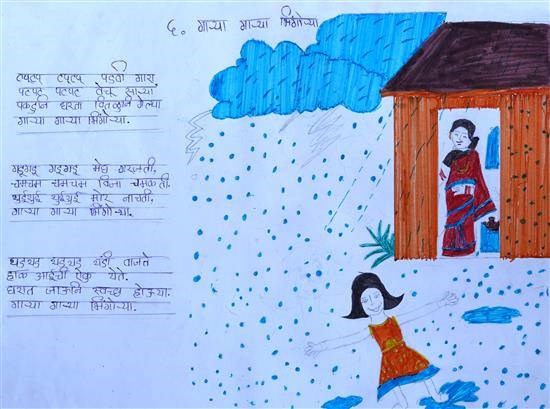 ६. गाऱ्या गाऱ्या भिंगोऱ्या
टपटप टपटप पडती गारा,
पटपट पटपट वेचू साऱ्या
पकडुनि धरता वितळुनि गेल्या
गाऱ्या गाऱ्या भिंगोऱ्या.
गडगड गडगड मेघ गरजती,
चमचम चमचम विजा चमकती.
थुईथुई थुईथुई मोर नाचती,
गाऱ्या गाऱ्या भिंगोऱ्या.
थडथड थडथड थंडी वाजते
हाक आईची ऐकु येते.
घरात जाऊनि स्वच्छ होऊया.
गाऱ्या गाऱ्या भिंगोऱ्या.